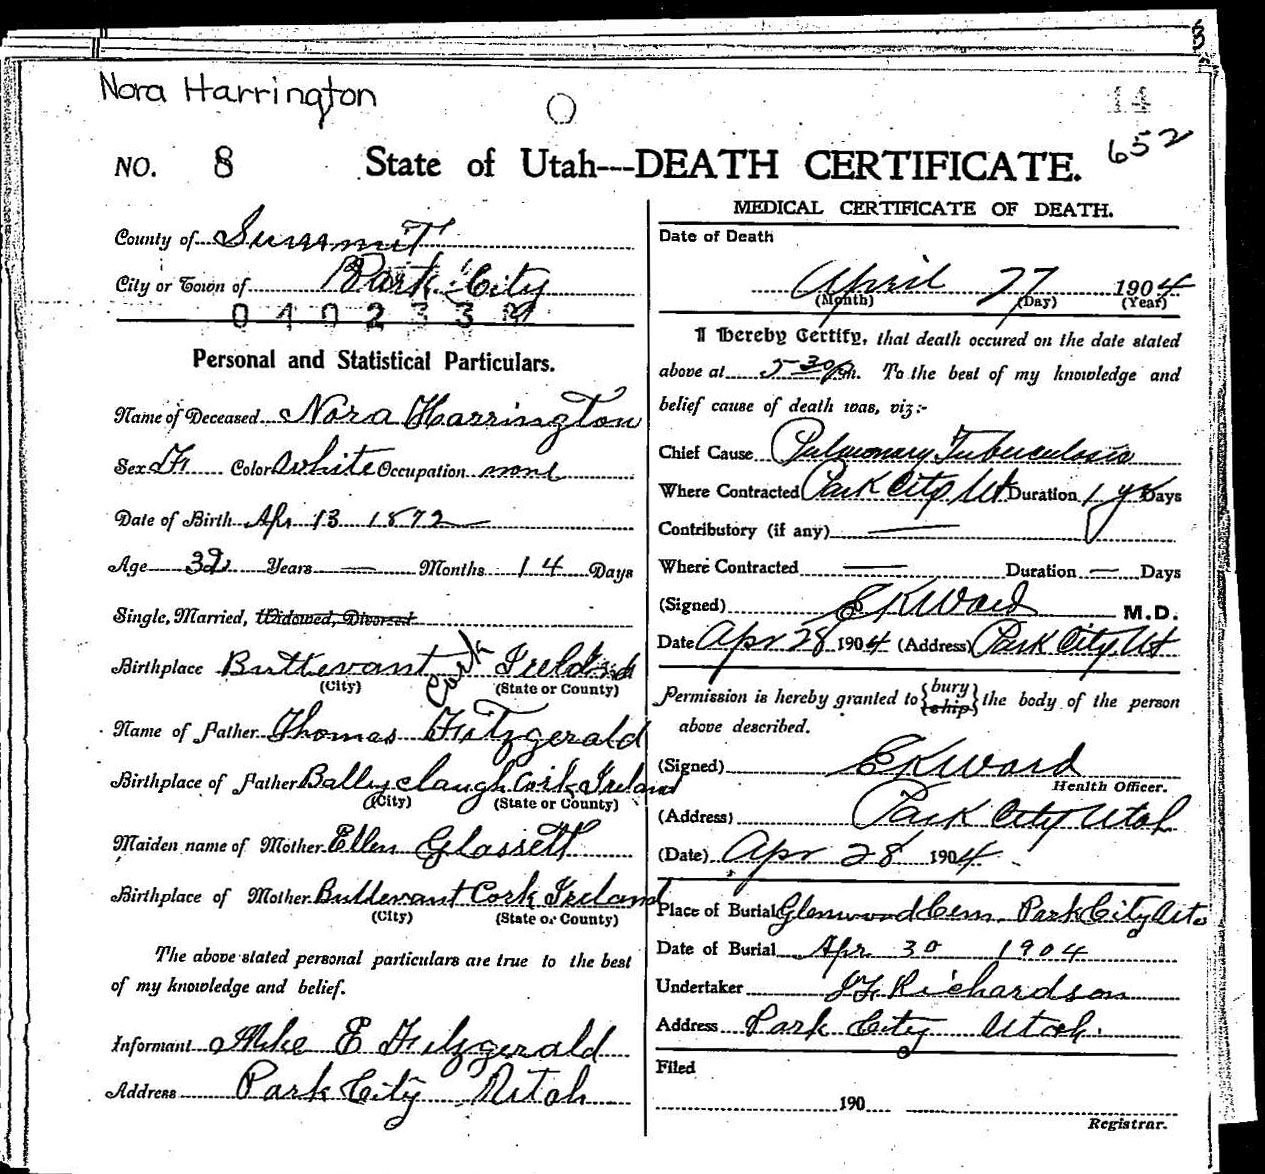 Nora Harrington
14
652
NO. 8 State of Utah---DEATH CERTIFICATE.
County of Summit
City or Town of Park City
Personal and Statistical Particulars.
Name of Deceased Nora Harrington
Sex F. Color White Occupation none
Date of Birth Apr 13 1872
Age 32 Years — Months 14 Days
Single, Married, Widowed, Divorced
Birthplace Buttevant Cork Ireland
(City) (State or County)
Name of Father Thomas Fitzgerald
Birthplace of Father Ballyclaugh Cork Ireland
(City) (State or County)
Maiden name of Mother Ellen Glassett
Birthplace of Mother Buttevant Cork Ireland
(City) (State or County)
The above stated personal particulars are true to the best
of my knowledge and belief.
Informant Mike E Fitzgerald
Address Park City Utah
MEDICAL CERTIFICATE OF DEATH.
Date of Death
April 27 1904
(Month) (Day) (Year)
I Hereby Certify, that death occured on the date stated
above at 5 30 p.m. To the best of my knowledge and
belief cause of death was, viz:-
Chief Cause Pulmonary Tuberculosis
Where Contracted Park City Ut Duration 1 yr Days
Contributory (if any) —
Where Contracted — Duration — Days
(Signed) E K Ward M.D.
Date Apr 28 1904 (Address) Park City Ut
Permission is hereby granted to {bury
ship} the body of the person
above described.
(Signed) E K Ward
Health Officer.
(Address) Park City Utah
(Date) Apr 28 1904
Place of Burial Glenwood Cem. Park City
Date of Burial Apr 30 1904
Undertaker Richardson
Address Park City Utah.
Filed
190
Registrar.